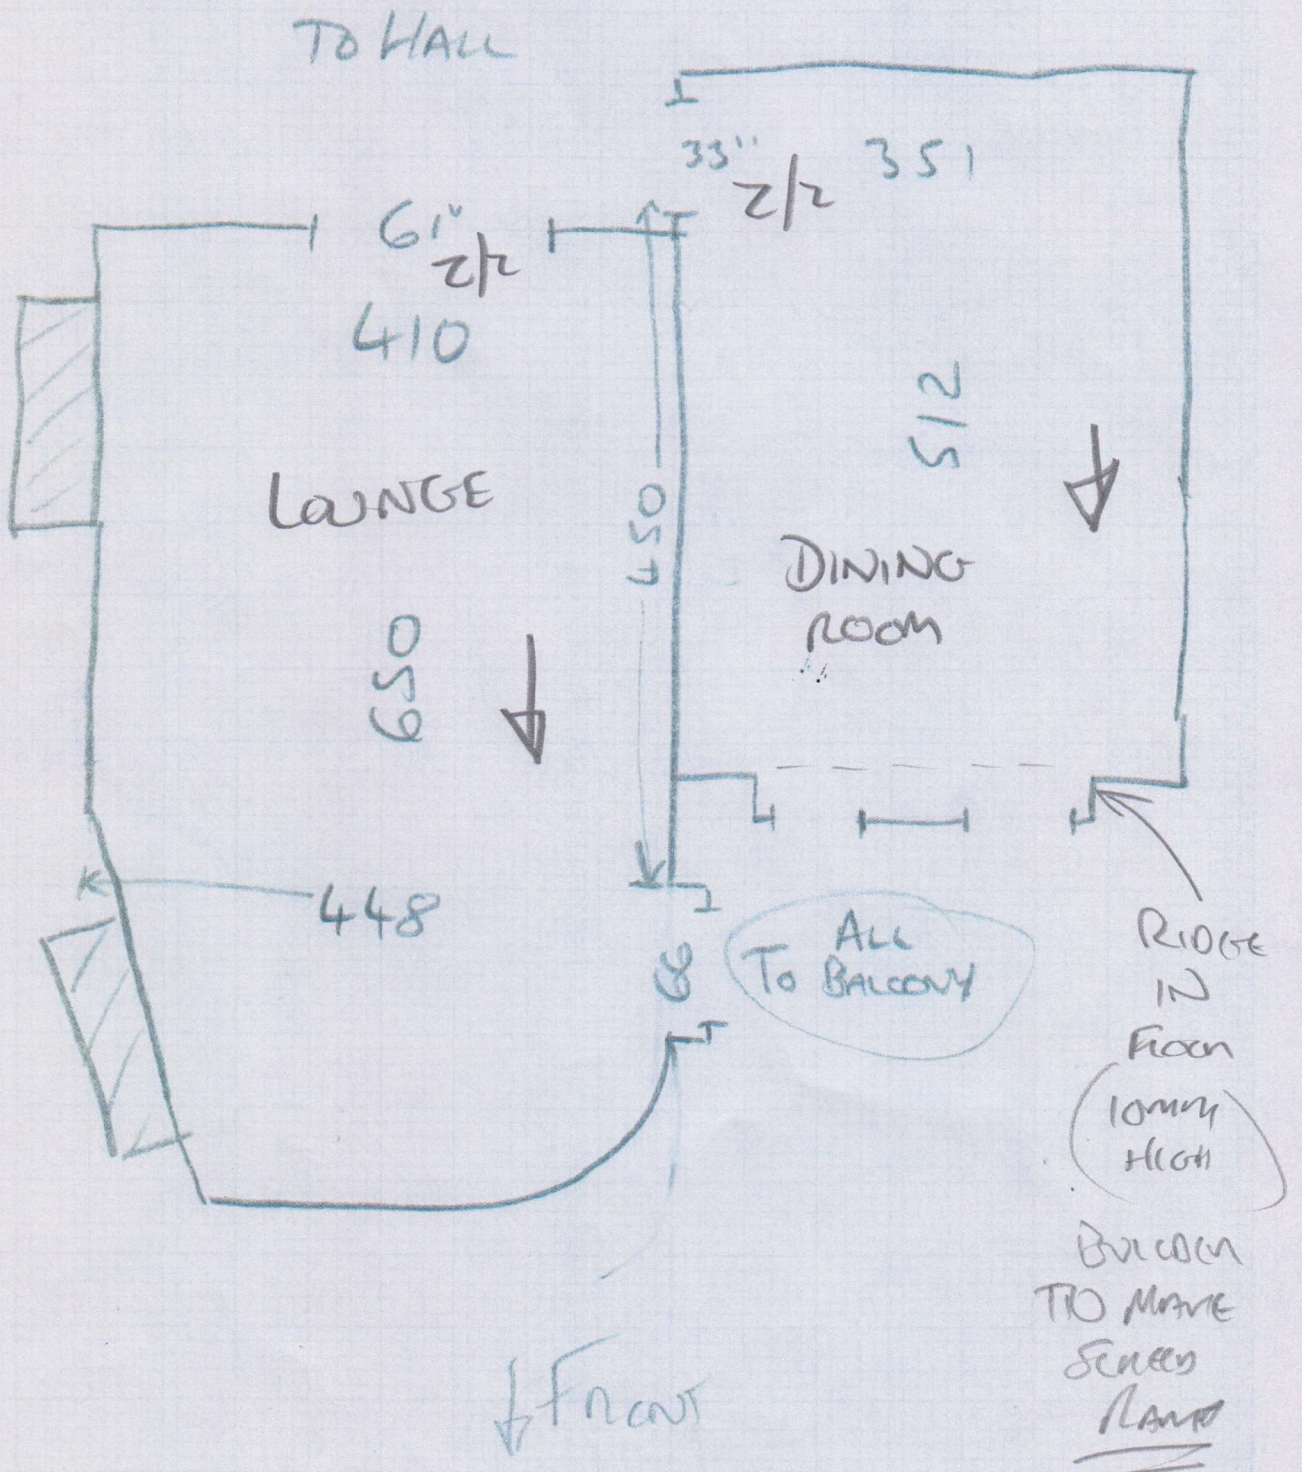 TO HALL
33"
Z/2
351
61"
Z/2
410
512
LOUNGE
450
DINING
ROOM
650
448
ALL
TO BALCONY
RIDGE
IN
FLOOR
10mm
HIGH
BUILDER
TO MAKE
SCREED
RAMP
FRONT